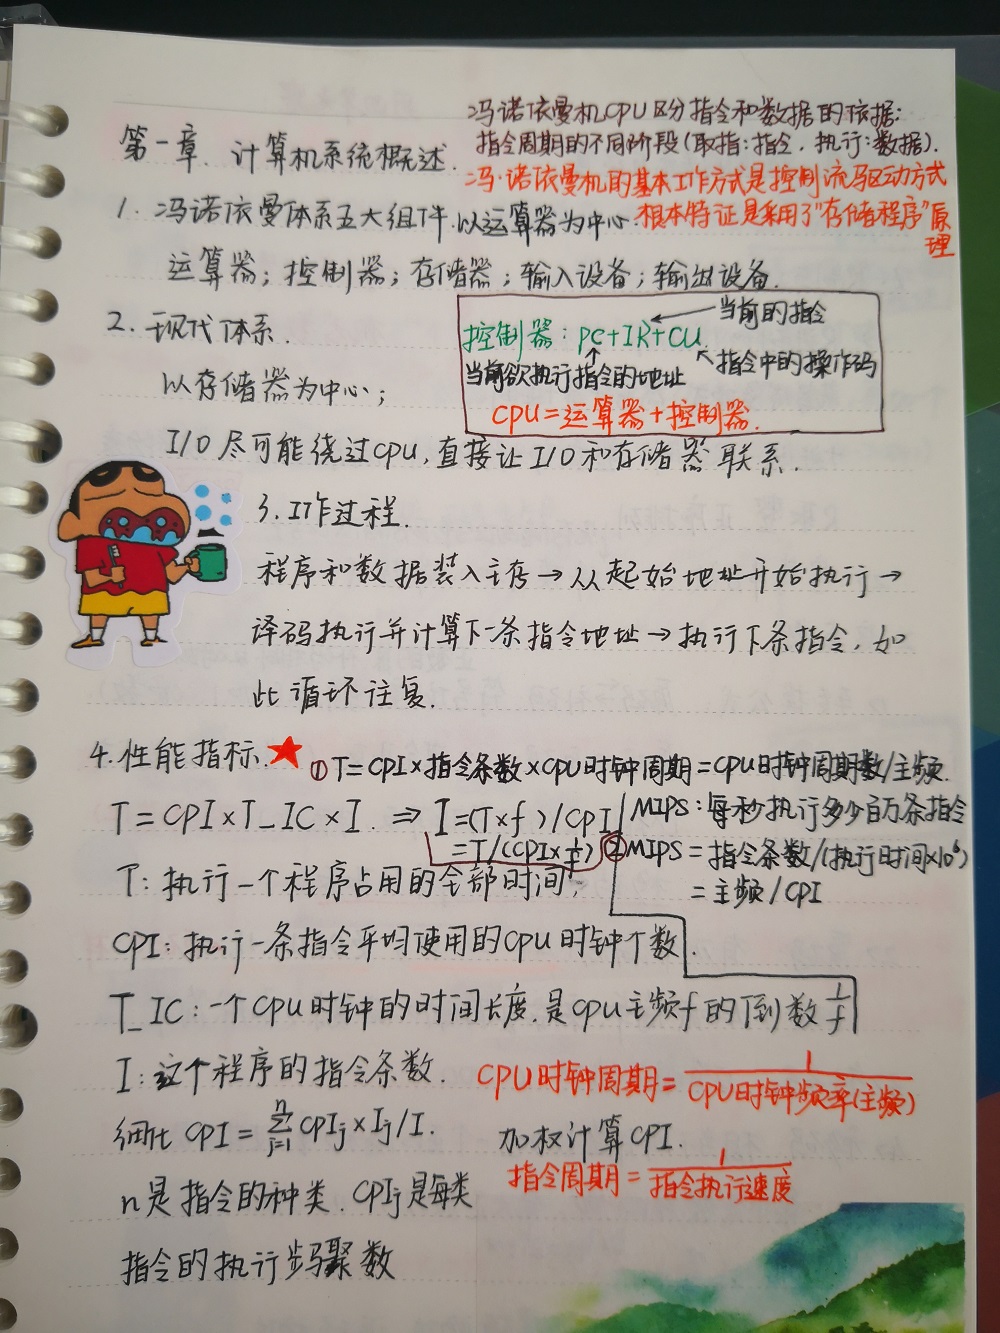 冯诺依曼机CPU区分指令和数据的依据:
指令周期的不同阶段(取指:指令,执行:数据).
冯·诺依曼机的基本工作方式是控制流驱动方式
根本特征是采用了"存储程序"原理
第一章. 计算机系统概述.
1. 冯诺依曼体系五大组件.以运算器为中心.
运算器;控制器;存储器;输入设备;输出设备.
2. 现代体系.
以存储器为中心;
I/O尽可能绕过CPU,直接让I/O和存储器联系.
当前的指令
控制器:PC+IR+CU.
当前欲执行指令的地址
指令中的操作码
CPU=运算器+控制器.
3.工作过程.
程序和数据装入主存→从起始地址开始执行→
译码执行并计算下一条指令地址→执行下条指令,如
此循环往复.
4.性能指标.★
①T=CPI×指令条数×CPU时钟周期=CPU时钟周期数/主频.
T=CPI×T_IC×I. ⇒ I=(T×f)/CPI
=T/(CPI×1/f)
MIPS:每秒执行多少百万条指令
②MIPS=指令条数/(执行时间×10⁶)
=主频/CPI
T:执行一个程序占用的全部时间;
CPI:执行一条指令平均使用的CPU时钟个数.
T_IC:一个CPU时钟的时间长度.是CPU主频f的倒数1/f
I:这个程序的指令条数.
CPU时钟周期=1/CPU时钟频率(主频)
细化 CPI=∑ⁿⱼ₌₁CPIⱼ×Iⱼ/I. 加权计算CPI.
指令周期=1/指令执行速度
n是指令的种类.CPIⱼ是每类
指令的执行步骤数